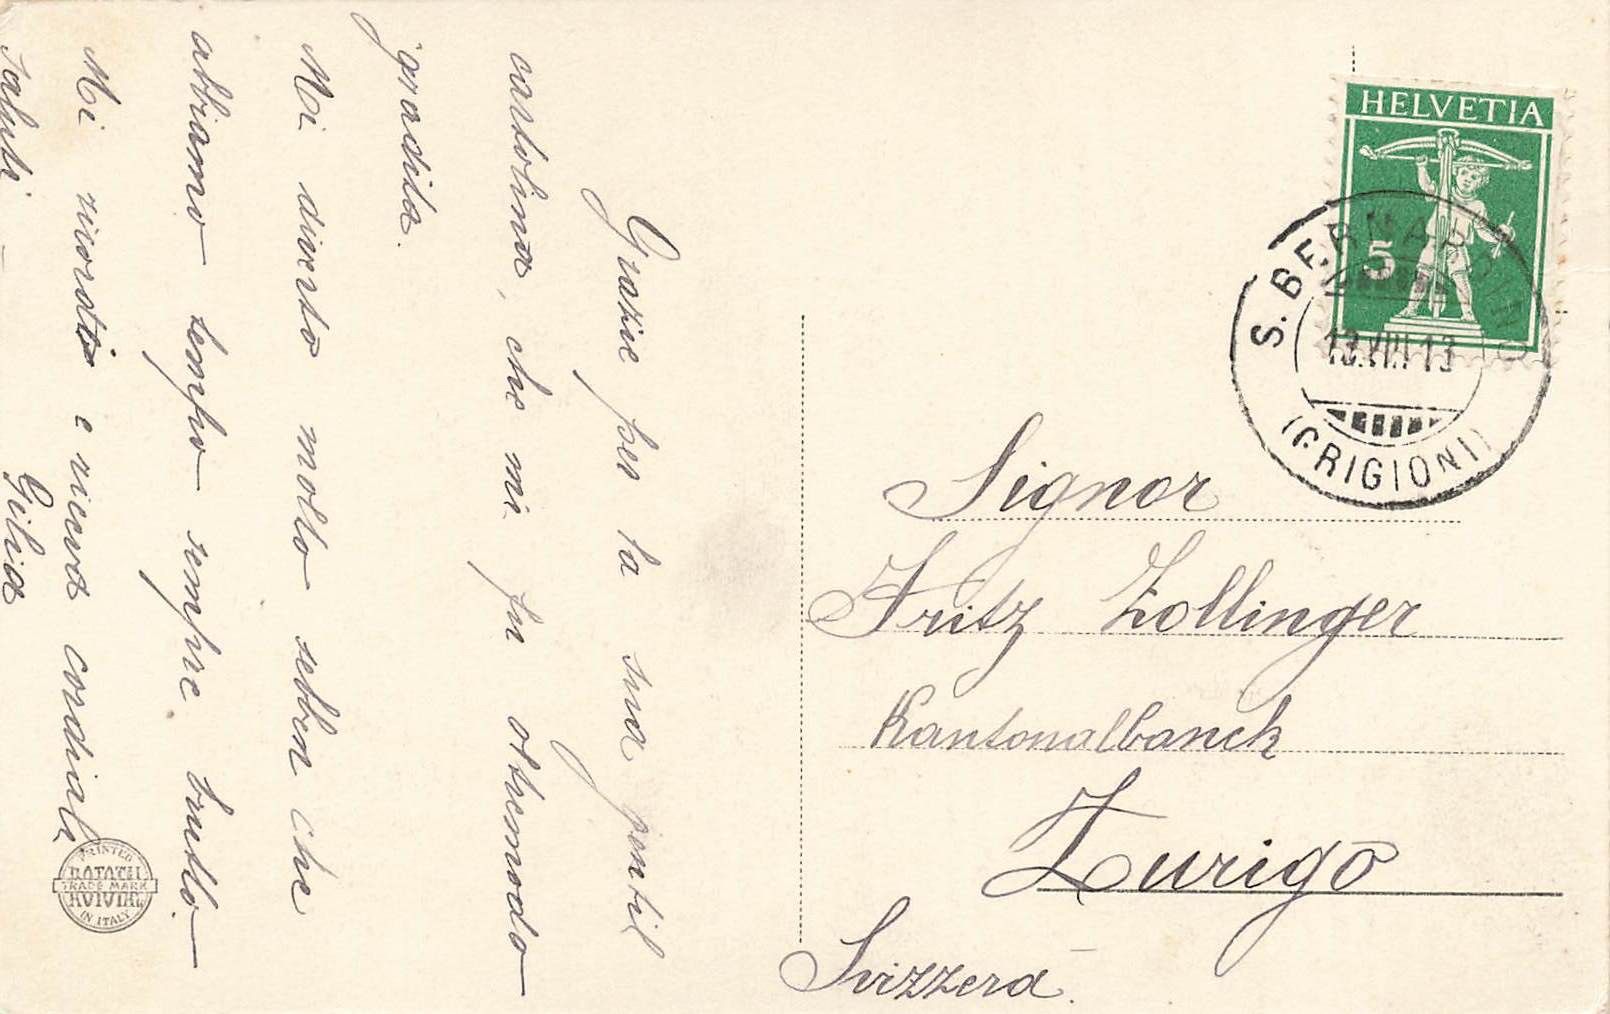 Grazie per la sua gentil
cartolina, che mi fu oltremodo
gradita.
Mi diverto molto seben che
abbiamo tempo sempre brutto.
Mi ricordi e riceva cordiali
saluti
Gilia
HELVETIA
5
S. BERNARDINO
13.VIII.13
(GRIGIONI)
Signor
Fritz Zollinger
Kantonalbanck
Zurigo
Svizzera.
PRINTED
TRADE MARK
IN ITALY